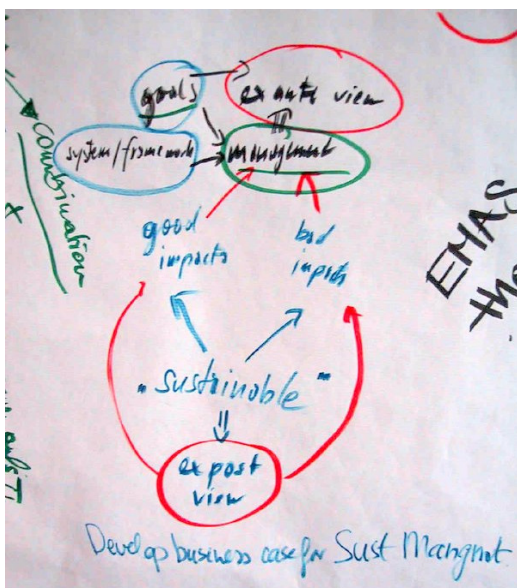 goals
ex ante view
system/framework
managment
combination
good
impacts
bad
impacts
EMAS
„sustainable"
ex post
view
Develop business case for Sust Mangmt